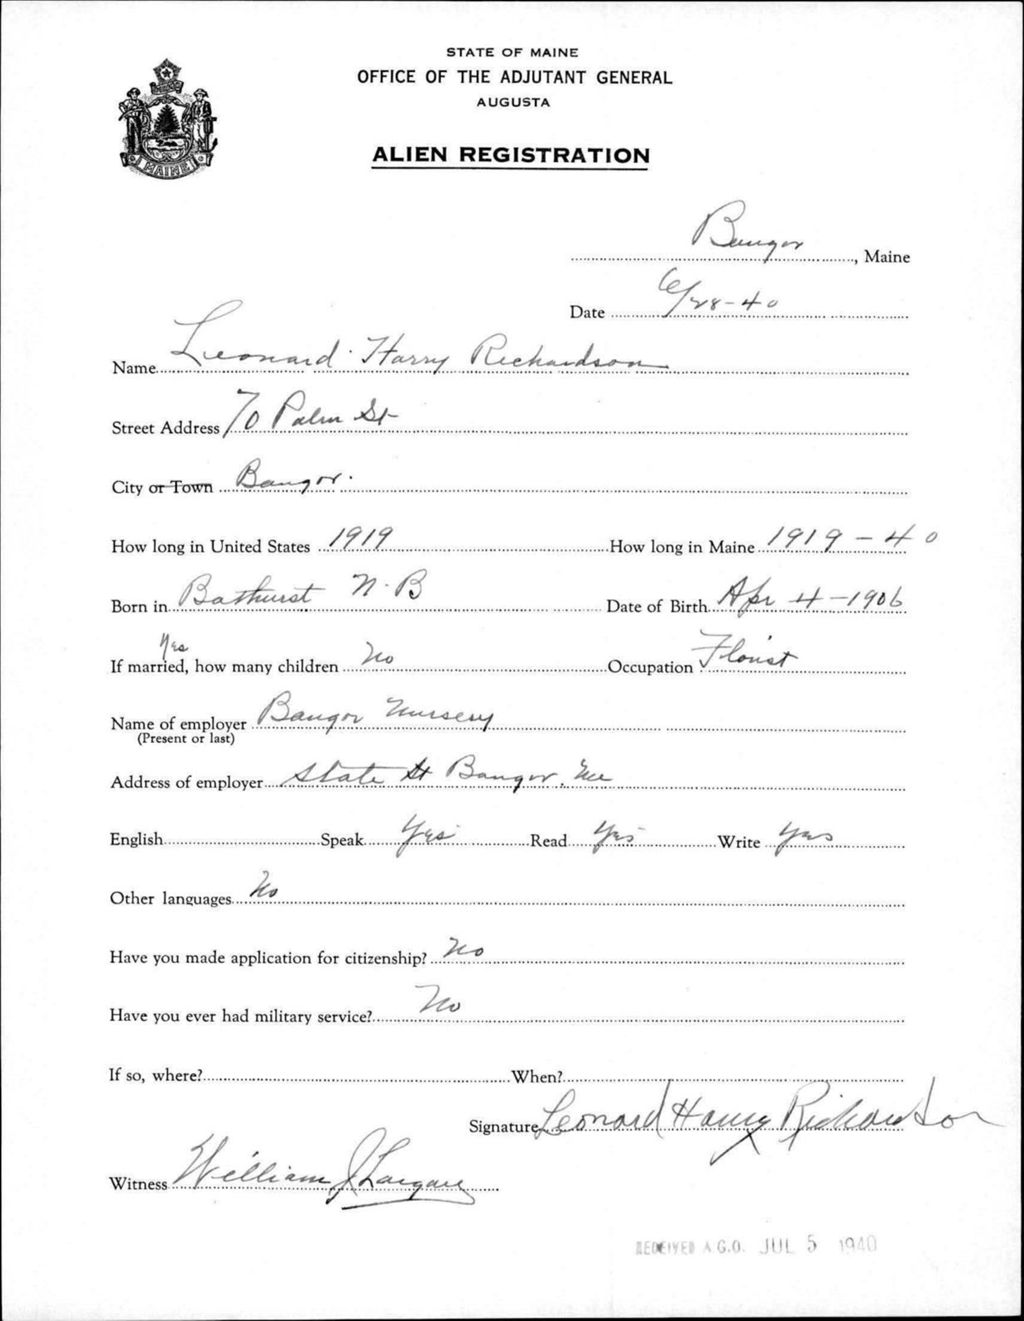 STATE OF MAINE
OFFICE OF THE ADJUTANT GENERAL
AUGUSTA
ALIEN REGISTRATION
MAINE
Bangor, Maine
Date 6/28-40
Name Leonard Harry Richardson
Street Address 70 Palm St
City or Town Bangor.
How long in United States 1919 How long in Maine 1919-40
Born in Bathurst N.B Date of Birth Apr 4-1906
Yes
If married, how many children No Occupation Florist
Name of employer Bangor Nursery
(Present or last)
Address of employer State St Bangor, Me
English Speak Yes Read Yes Write Yes
Other languages No
Have you made application for citizenship? No
Have you ever had military service? No
If so, where? When?
Signature Leonard Harry Richardson
Witness William J
RECEIVED A.G.O. JUL 5 1940